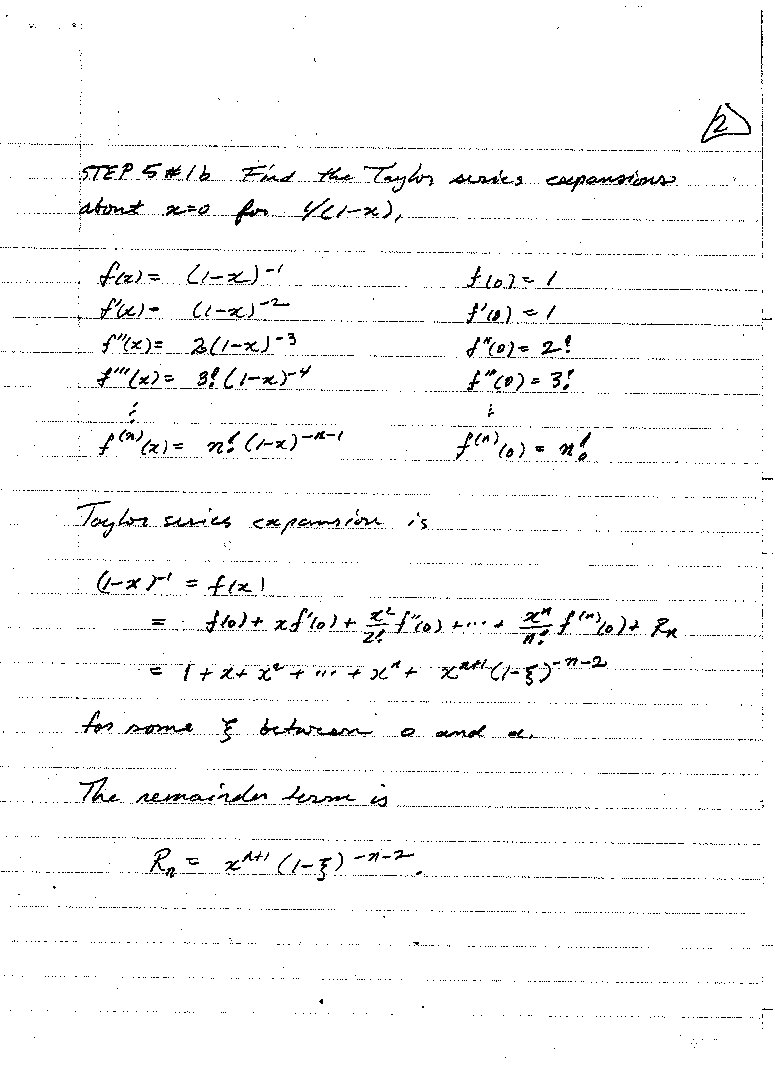 2
STEP 5 #1b Find the Taylor series expansions
about x=0 for 1/(1-x),
f(x) = (1-x)⁻¹ f(0) = 1
f'(x) = (1-x)⁻² f'(0) = 1
f''(x) = 2(1-x)⁻³ f''(0) = 2!
f'''(x) = 3!(1-x)⁻⁴ f'''(0) = 3!
⋮ ⋮
f⁽ⁿ⁾(x) = n!(1-x)⁻ⁿ⁻¹ f⁽ⁿ⁾(0) = n!
Taylor series expansion is
(1-x)⁻¹ = f(x)
= f(0) + xf'(0) + x²/2! f''(0) + ... + xⁿ/n! f⁽ⁿ⁾(0) + Rₙ
= 1 + x + x² + ... + xⁿ + xⁿ⁺¹(1-ξ)⁻ⁿ⁻²
for some ξ between 0 and x.
The remainder term is
Rₙ = xⁿ⁺¹(1-ξ)⁻ⁿ⁻².